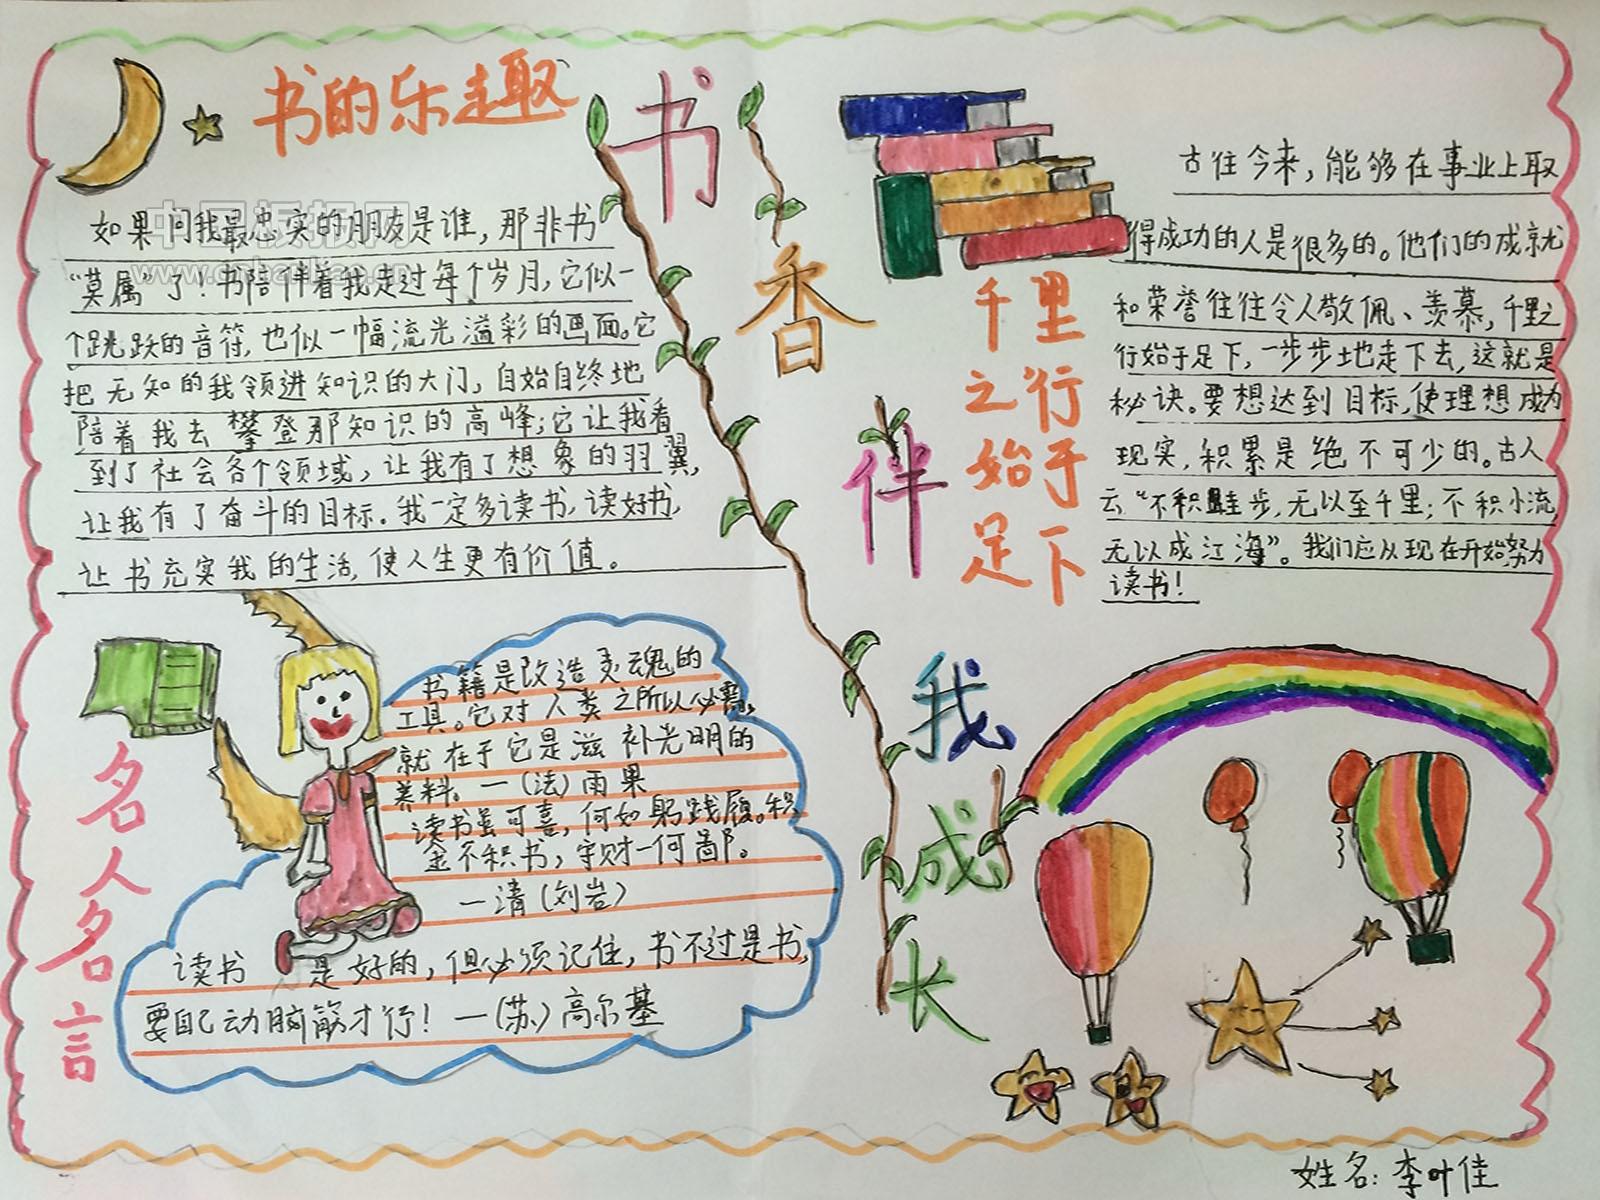 书的乐趣
如果问我最忠实的朋友是谁，那非书
“莫属”了！书陪伴着我走过每个岁月，它似一
个跳跃的音符，也似一幅流光溢彩的画面。它
把无知的我领进知识的大门，自始自终地
陪着我去攀登那知识的高峰；它让我看
到了社会各个领域，让我有了想象的羽翼，
让我有了奋斗的目标。我一定多读书，读好书，
让书充实我的生活，使人生更有价值。
书香伴我成长
千里
之行
始于
足下
古往今来，能够在事业上取
得成功的人是很多的。他们的成就
和荣誉往往令人敬佩、羡慕，千里之
行始于足下，一步步地走下去，这就是
秘诀。要想达到目标，使理想成为
现实，积累是绝不可少的。古人
云“不积跬步，无以至千里；不积小流，
无以成江海”。我们应从现在开始，努力
读书！
名人名言
书籍是改造灵魂的
工具。它对人类之所以必需，
就在于它是滋补光明的
养料。—（法）雨果
读书虽可喜，何如躬践履。积
金不积书，守财一何鄙。
—清（刘岩）
读书是好的，但必须记住，书不过是书，
要自己动脑筋才行！—（苏）高尔基
姓名：李叶佳
中国板报网